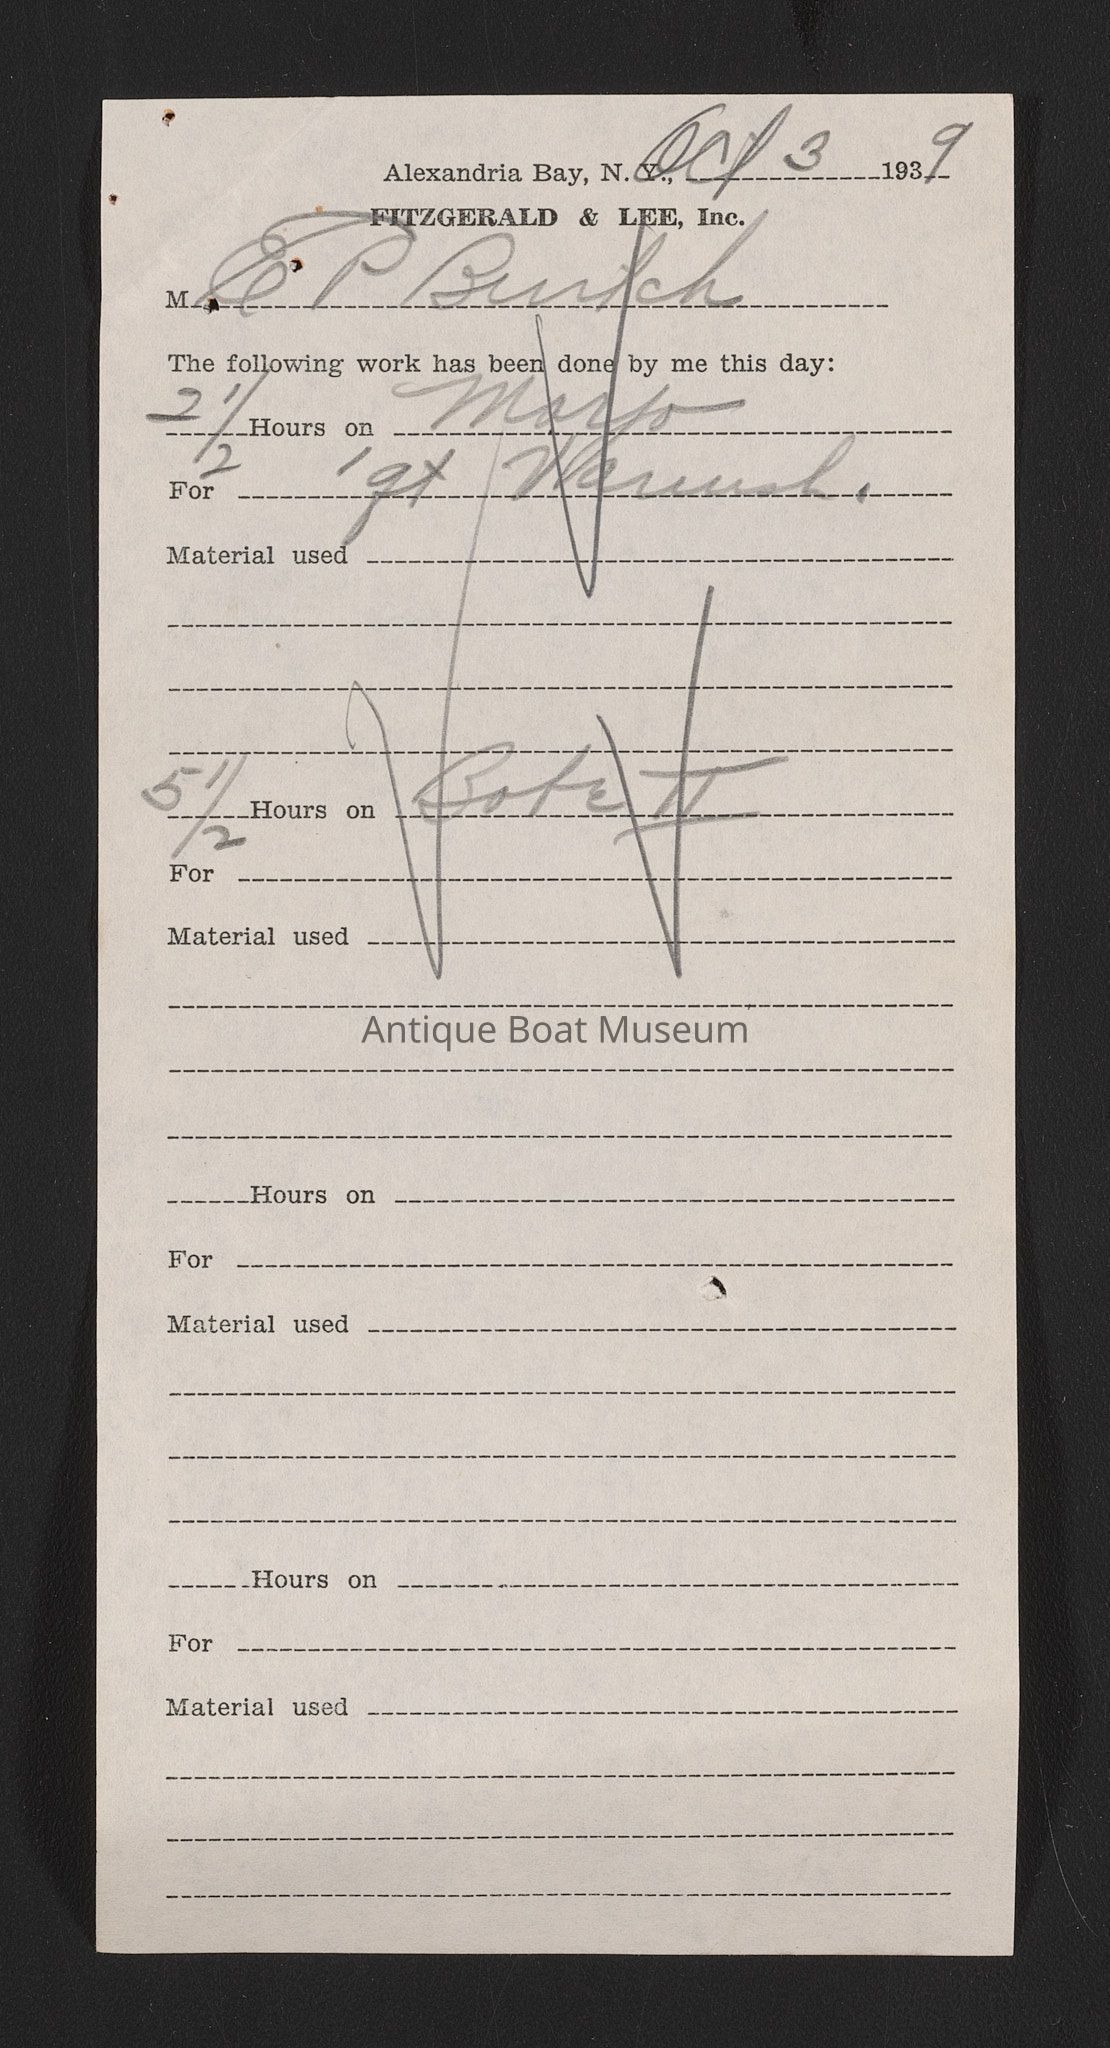 Alexandria Bay, N. Y., Oct 3 1939
FITZGERALD & LEE, Inc.
M E P Burtch
The following work has been done by me this day:
2 1/2 Hours on
For 1 qt Varnish.
Material used
5 1/2 Hours on Bobett
For
Material used
Antique Boat Museum
Hours on
For
Material used
Hours on
For
Material used